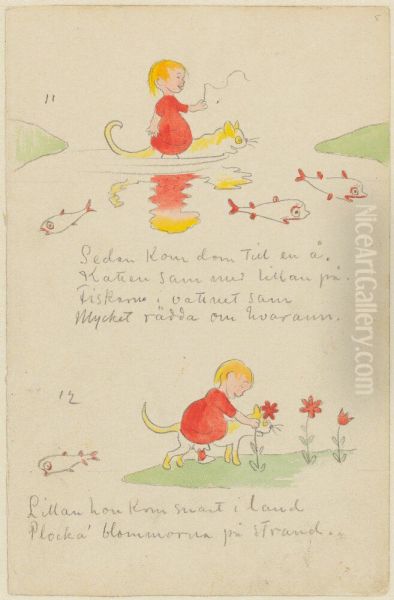 11
Sedan kom dom till en å.
Katten sam med lillan på.
Fiskarne i vattnet sam
Mycket rädda om hvarann.
12
Lillan hon kom snart i land
Plocka' blommorna på strand.
www.NiceArtGallery.com